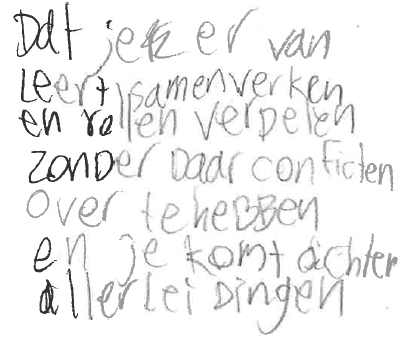 Dat je er van
Leert samenverken
en rollen verdelen
zonder daar conficten
over te hebben
en je komt achter
allerlei dingen